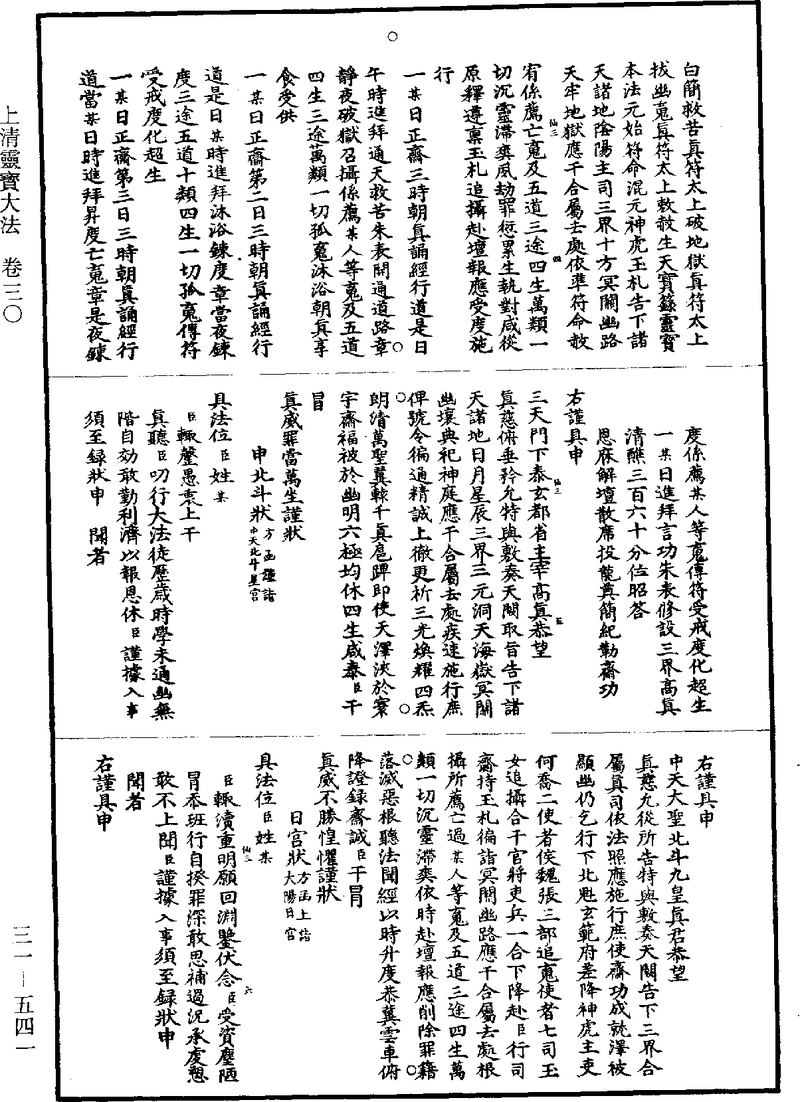 上清靈寶大法　卷三〇
三一—五四一
白簡救苦真符太上破地獄真符太上
拔幽䰟真符太上敕救生天寶籙靈寶
本法元始符命混元神虎玉札告下諸
天諸地陰陽主司三界十方冥關幽路
天牢地獄應干合屬去處依準符命赦
宥係薦亡䰟及五道三途四生萬類一
切沉靈滯奭夙劫罪愆累生執對咸從
原釋遵稟玉札追攝赴壇報應受度施
行
一某日正齋三時朝真誦經行道是日
午時進拜通天救苦朱表開通道路章
靜夜破獄召攝係薦某人等䰟及五道
四生三途萬類一切孤䰟沐浴朝真享
食受供
一某日正齋第二日三時朝真誦經行
道是日某時進拜沐浴鍊度章當夜鍊
度三途五道十類四生一切孤䰟傳符
受戒度化超生
一某日正齋第三日三時朝真誦經行
道當某日時進拜昇度亡䰟章是夜鍊
度係薦某人等䰟傳符受戒度化超生
一某日進拜言功朱表修設三界高真
清醮三百六十分位昭答
恩庥解壇散席投龍奠簡紀勒齋功
右謹具申
三天門下泰玄都省主宰高真恭望
真慈俯垂矜允特與敷奏天闕取旨告下諸
天諸地日月星辰三界三元洞天海嶽冥關
幽壤典祀神庭應干合屬去處疾速施行庶
俾號令徧通精誠上徹更祈三光煥耀四炁
朗清萬聖冀棘千真扈蹕即使天澤浹於寰
宇齋福被於幽明六極均休四生咸泰臣干
冒
真威罪當萬坐謹狀
申北斗狀方函謹詣中天北斗星宮
具法位臣姓某
臣輒罄愚衷上干
真聽臣叨行大法徒歷歲時學未通幽無
階自効敢勤利濟以報恩休臣謹據入事
須至録狀申　聞者
右謹具申
中天大聖北斗九皇真君恭望
真慈允從所告特與敷奏天闕告下三界合
屬真司依法照應施行庶使齋功成就澤被
顯幽仍乞行下北魁玄範府差降神虎主吏
何喬二使者侯魏張三部追䰟使者七司玉
女追攝合干官將吏兵一合下降赴臣行司
齋持玉札徧詣冥關幽路應干合屬去處根
攝所薦亡過某人等䰟及五道三途四生萬
類一切沉靈滯奭依時赴壇報應削除罪籍
落滅惡根聽法聞經以時升度恭冀雲車俯
降證録齋誠臣干冒
真威不勝惶懼謹狀
日宮狀方函上詣太陽日宮
具法位臣姓某
臣輒瀆重明願回淵鑒伏念臣受質塵陋
冒忝班行自揆罪深敢思補過況承虔懇
敢不上聞臣謹據入事須至録狀申
聞者
右謹具申